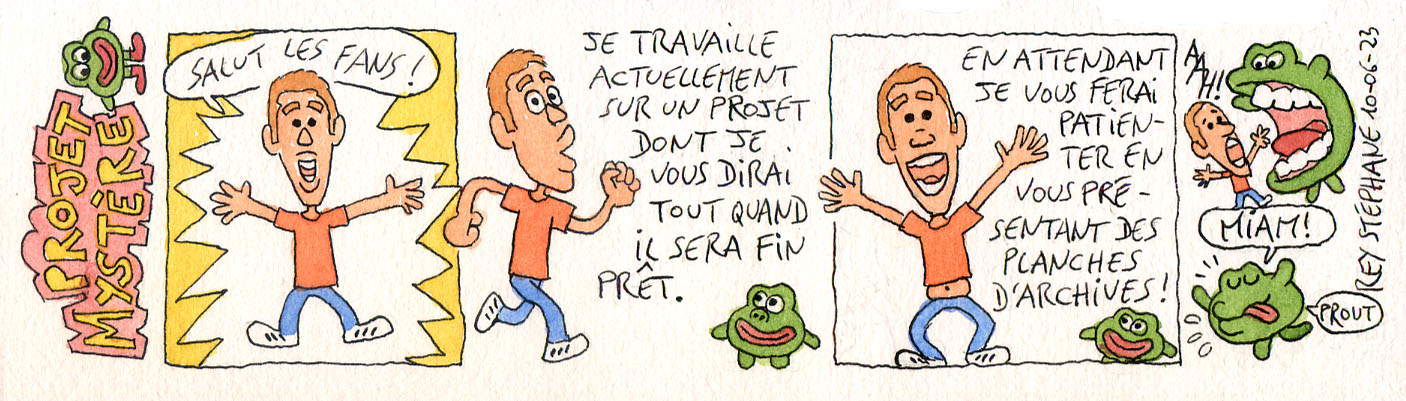 PROJET
MYSTÈRE
SALUT LES FANS !
JE TRAVAILLE
ACTUELLEMENT
SUR UN PROJET
DONT JE
VOUS DIRAI
TOUT QUAND
IL SERA FIN
PRÊT.
EN ATTENDANT
JE VOUS FERAI
PATIEN-
TER EN
VOUS PRÉ-
SENTANT DES
PLANCHES
D'ARCHIVES !
AAAH !
MIAM !
PROUT
REY STÉPHANE 10-06-23